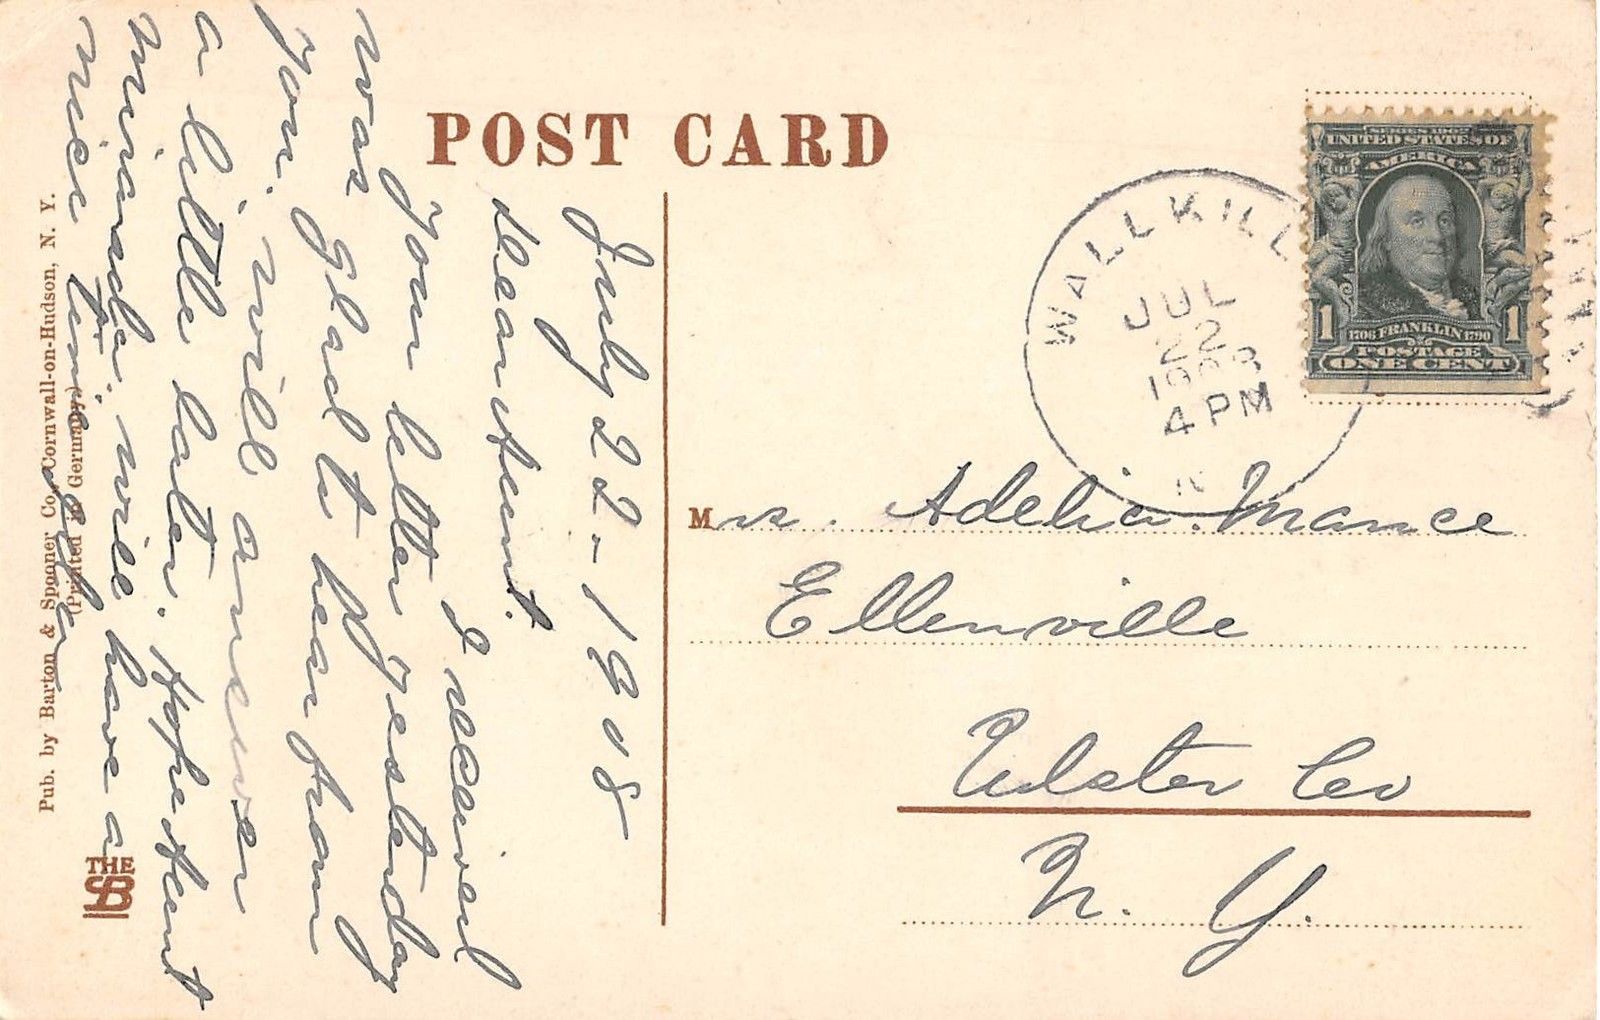 POST CARD
July 22-1908
Dear Aunt.
I received
your letter yesterday
was glad to hear from
you. will answer
a little later. Hope Aunt
Miranda. will have a
nice time
Pub. by Barton & Spooner Co., Cornwall-on-Hudson, N. Y.
(Printed in Germany)
THE
SB
WALLKILL
JUL
22
1908
4 PM
N
SERIES 1902
UNITED STATES OF
AMERICA
1 1706 FRANKLIN 1790 1
POSTAGE
ONE CENT
Mrs. Adelia Mance
Ellenville
Ulster Co
N. Y.